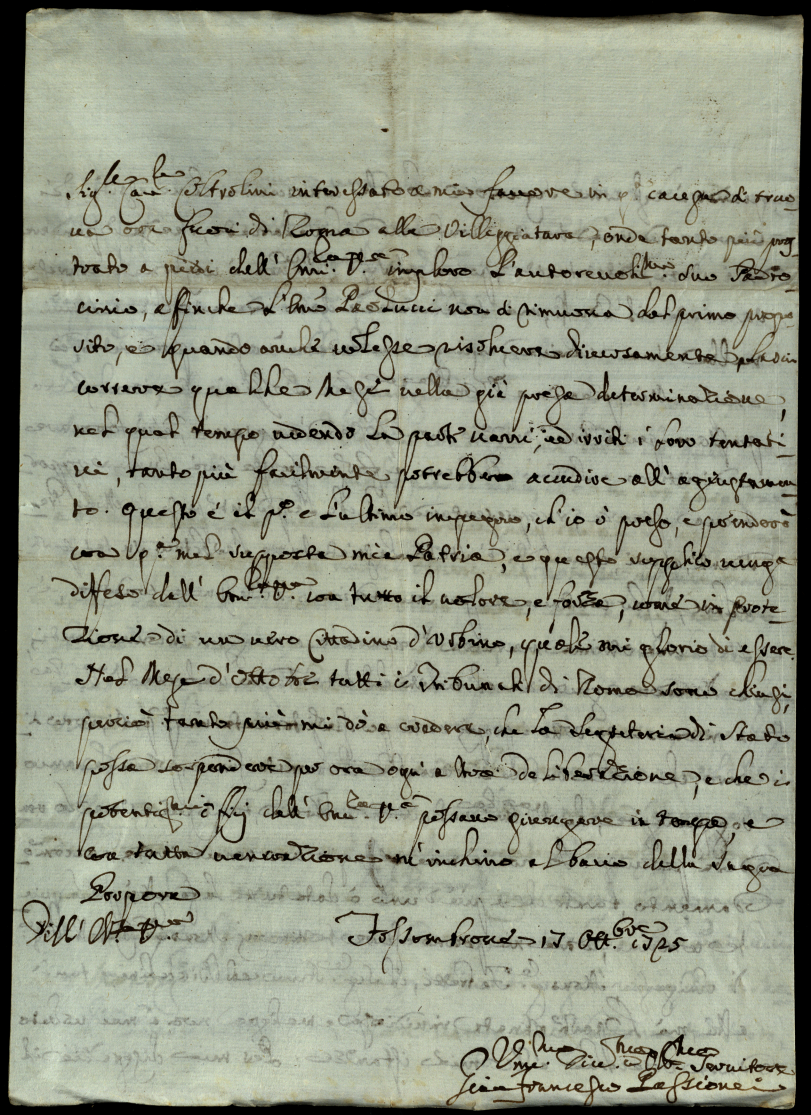 Sig.le Cav.re Coltrolini interessato a mio favore in q.a causa di trua
ua ora fuori di Roma alla Villeggiatura, onde tanto più pros
trato a piedi dell' Em.za V.ra imploro l'autoreuoliss.mo suo Patro
cinio, affinche l'Em.o Paolucci non di rimuoua dal primo propo
sito, e quando anche uolesse risoluere diuersamente
correre qualche Mese nella già presa determinazione,
nel qual tempo uedendo la parte uani, ed irriti i loro tentati=
ui, tanto più facilmente potrebbe accudire all' agiustamen
to. Questo é il p.o e l'ultimo impegno, ch'io ò preso, e
con q.a mia supposta mia Patria, e questo supplico uenga
diffeso dall' Em.za V.ra con tutto il ualore, e forza, come in prote=
zione di un uero Cittadino d'Urbino, quale mi glorio di essere.
Nel Mese d'Ottobre tutti i Tribunali di Roma sono chiusi,
perciò tanto più mi dò a credere, che la Segreteria di Stato
possa sospendere per ora ogni altra deliberazione, e che i
potentiss.mi offizj dall' Em.za V.ra possano giungere in tempo, e
con tutta uenerazione m'inchino al bacio della Sagra
Porpora
Dell' Em.za V.ra
Fossombrone 17 Ott.bre 1725
Um.mo Diu.mo Obb.mo Seruitore
Gian Francesco Passionei